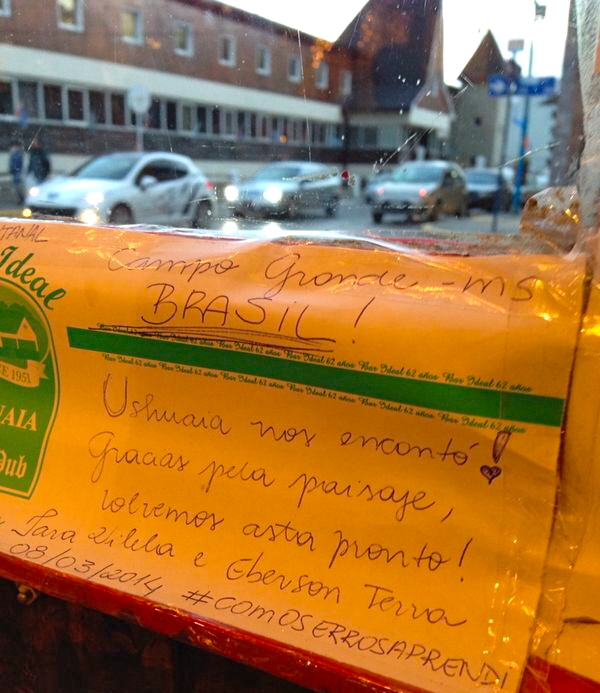 TANAL
Campo Grande - MS
BRASIL!
Ideal
CE 1951
UAIA
Pub
Bar Ideal 62 años Bar Ideal 62 años Bar Ideal 62 años Bar Ideal 62 años Bar Ideal 62 años
Bar Ideal 62 años Bar Ideal 62 años Bar Ideal 62 años Bar Ideal 62 años Bar Ideal 62 años
Ushuaia nos encontó!
Gracias pela paisaje,
volvemos asta pronto!
Iara Vilela e Eberson Terra
08/03/2014 #COMOSERROSAPRENDI